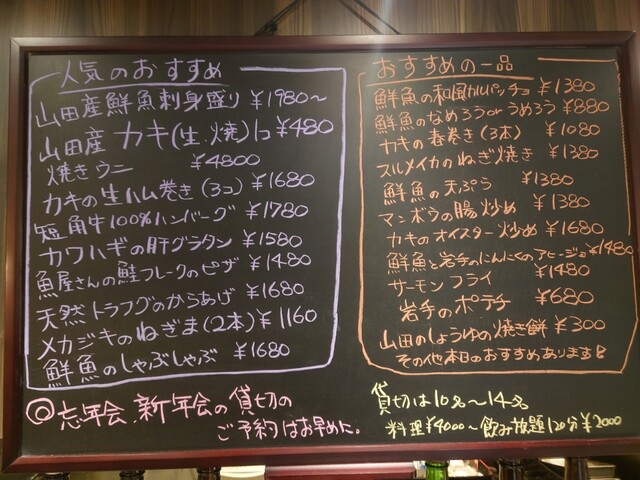 人気のおすすめ
山田産鮮魚刺身盛り ¥1980~
山田産カキ(生.焼)1コ ¥480
焼きウニ ¥4800
カキの生ハム巻き(3コ) ¥1680
短角牛100%ハンバーグ ¥1780
カワハギの肝グラタン ¥1580
魚屋さんの鮭フレークのピザ ¥1480
天然トラフグのからあげ ¥1680
メカジキのねぎま(2本) ¥1160
鮮魚のしゃぶしゃぶ ¥1680
おすすめの一品
鮮魚の和風カルパッチョ ¥1380
鮮魚のなめろうorうめろう ¥880
カキの春巻き(3本) ¥1080
スルメイカのねぎ焼き ¥1380
鮮魚の天ぷら ¥1380
マンボウの腸炒め ¥1380
カキのオイスター炒め ¥1680
鮮魚と岩手のにんにくのアヒージョ ¥1480
サーモンフライ ¥1480
岩手のポテチ ¥680
山田のしょうゆの焼き餅 ¥300
その他本日のおすすめあります!
◎忘年会.新年会の貸切の
ご予約はお早めに。
貸切は10名~14名
料理¥4000~飲み放題120分¥2000